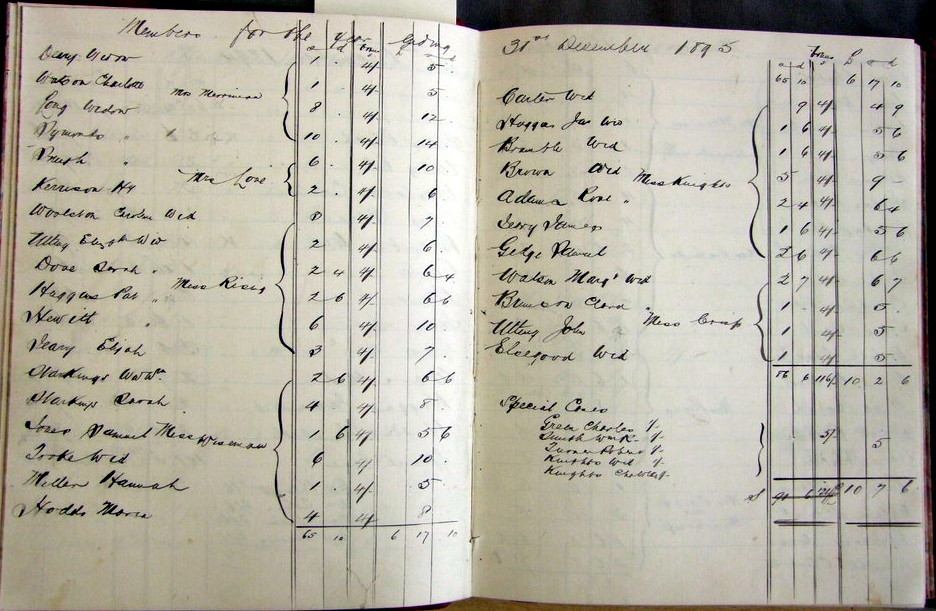 Members for the year ending
s d Bonus s d
Deary Widow 1 . 4/- 5 .
Watson Charlotte Mrs Merriman 1 . 4/- 5 .
Long Widow 8 . 4/- 12 .
Symonds " 10 . 4/- 14 .
Brush " 6 . 4/- 10
Kerrison Hy Mrs Love 2 . 4/- 6
Woolston Caroline Wid 3 4/- 7
Utting Elizbth Wid 2 4/- 6
Dove Sarah " 2 4 4/- 6 4
Huggins Pat " Miss Rising 2 6 4/- 6 6
Hewitt " 6 4/- 10
Deary Elijah 3 4/- 7
Harkings Wm 2 6 4/- 6 6
Starkings Sarah 4 4/- 8
Jones Samuel Miss Wiseman 1 6 4/- 5 6
Tooke Wid 6 4/- 10
Miller Hannah 1 4/- 5
Hodds Maria 4 4/- 8
65 10 6 17 10
31st December 1895
s d Bonus £ s d
65 10 6 17 10
Carter Wid 9 4/- 4 9
Huggins Jas Wid 1 6 4/- 5 6
Bramble Wid 1 6 4/- 5 6
Brown Wid Miss Knights 5 4/- 9 -
Adams Rose " 2 4 4/- 6 4
Jerry James 1 6 4/- 5 6
Gedge Samuel 2 6 4/- 6 6
Watson Margt Wid 2 7 4/- 6 7
Benison Clara Miss Crisp 1 4/- 5
Utting John 1 4/- 5
Elsegood Wid 1 4/- 5
86 6 116/- 10 2 6
Special Cases
Green Charles 1/-
Smith 1/-
Turner Robert 1/- 5/- 5
Knights Wid 1/-
Knights Charles 1/-
6 10 7 6